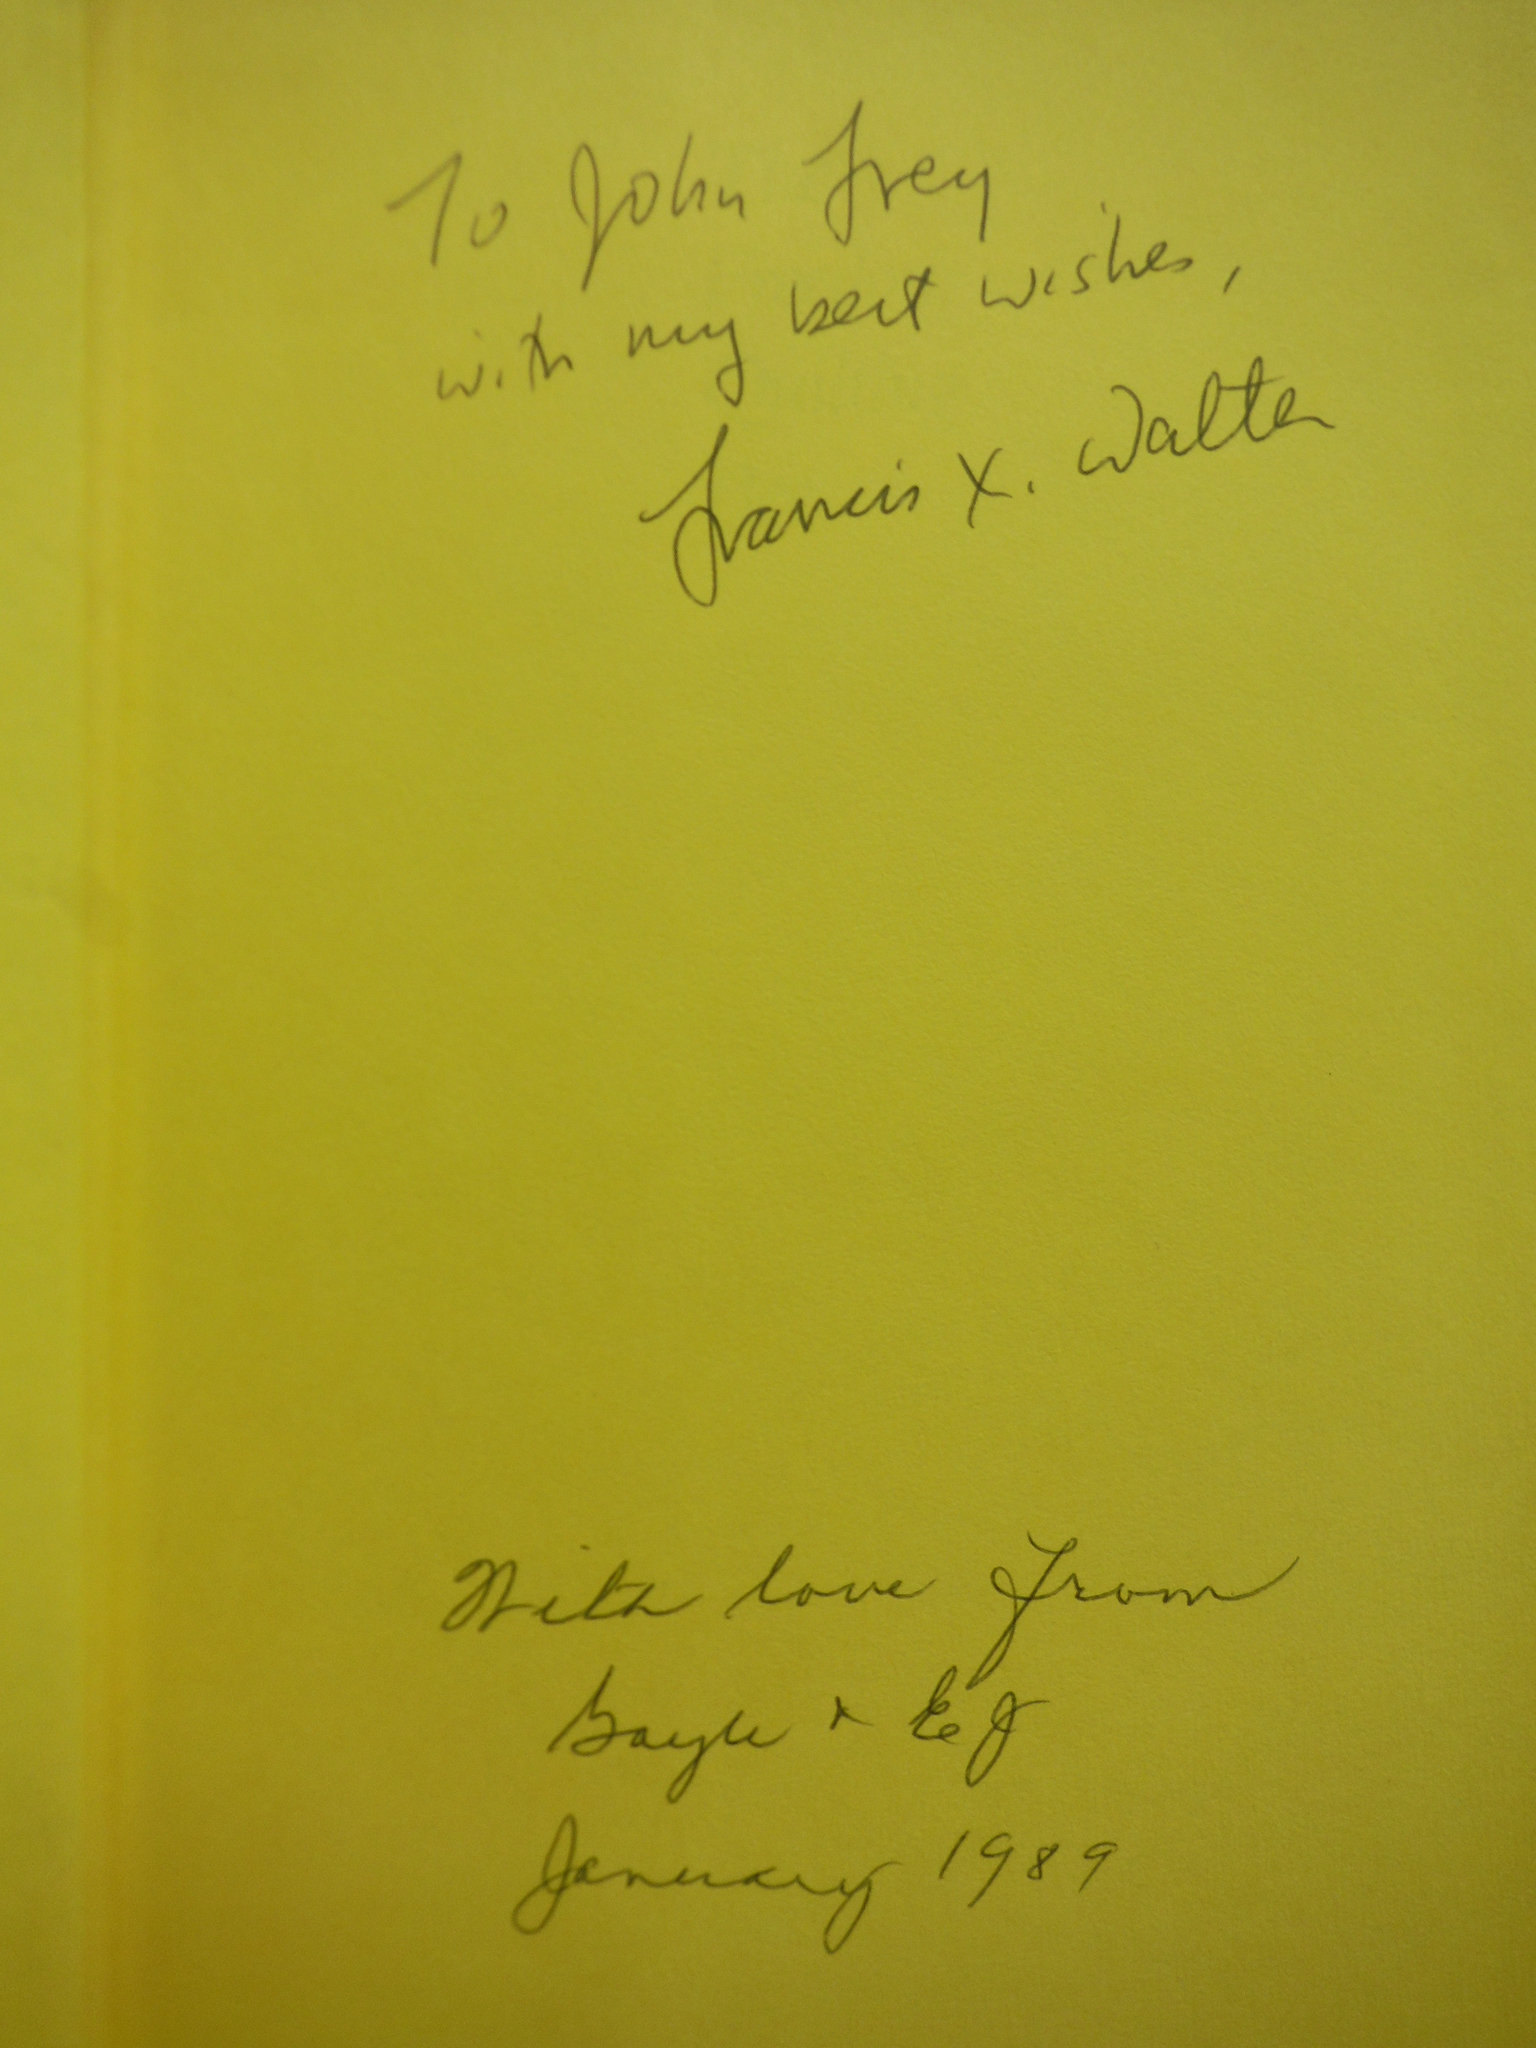 To John Frey
with my best wishes,
Francis X. Walter
With love from
Gayle + EJ
January 1989